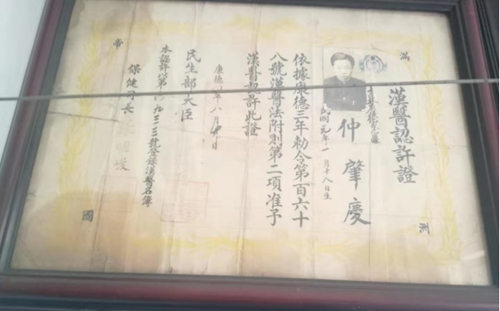 滿洲帝國
漢醫認許證
仲肇慶
元年一月十八日生
依據康德三年勅令第百六十
八號漢醫法附則第二項准予
漢醫認許此證
康德 年八月 日
民生部大臣
號登錄漢醫名簿
保健司長